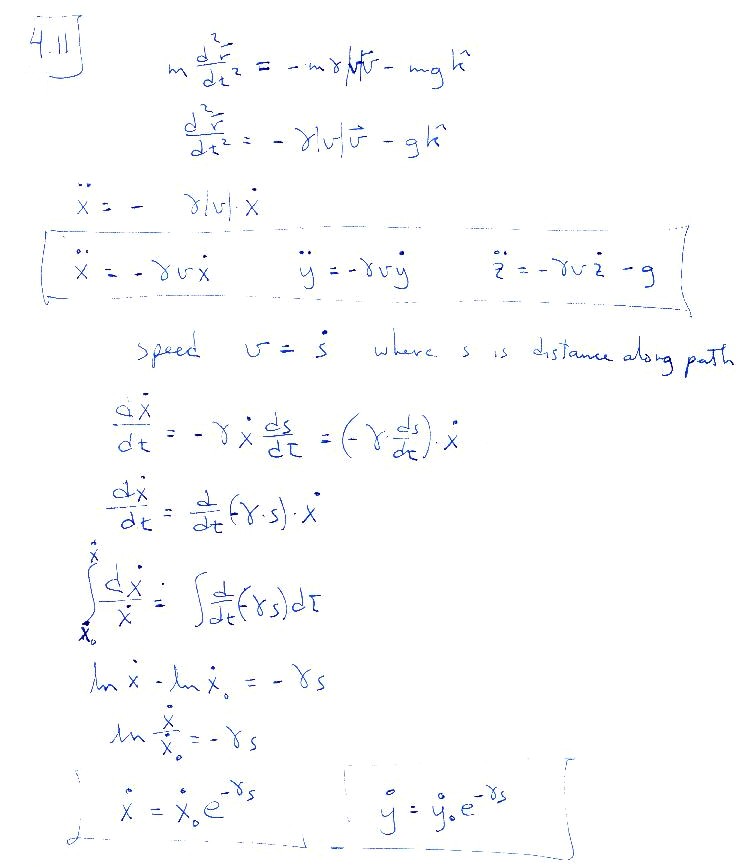 4.11
m d²r̄/dt² = - mγ|v|v̄ - mg k̂
d²r̄/dt² = - γ|v|v⃗ - g k̂
ẍ = - γ|v|·ẋ
ẍ = - γvẋ ÿ = -γvẏ z̈ = -γvż - g
speed v = ṡ where s is distance along path
dẋ/dt = - γẋ ds/dt = (-γ·ds/dt)·ẋ
dẋ/dt = d/dt(-γ·s)·ẋ
∫_{ẋ₀}^{ẋ} dẋ/ẋ = ∫ d/dt(-γs)dt
ln ẋ - ln ẋ₀ = - γs
ln ẋ/ẋ₀ = - γs
ẋ = ẋ₀e^{-γs} ẏ = ẏ₀e^{-γs}